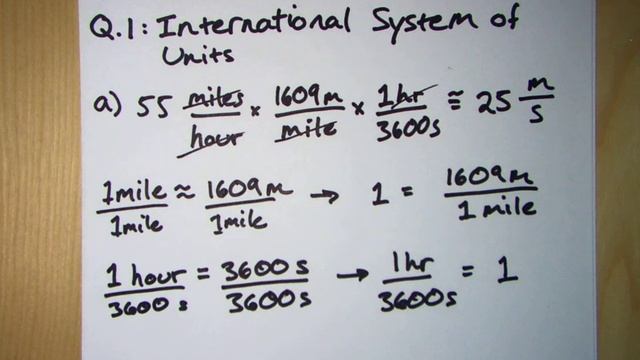 Q.1: International System of
Units
a) 55 miles/hour × 1609m/mile × 1hr/3600s ≅ 25 m/s
1mile/1mile ≈ 1609m/1mile → 1 = 1609m/1 mile
1 hour/3600 s = 3600 s/3600s → 1hr/3600s = 1